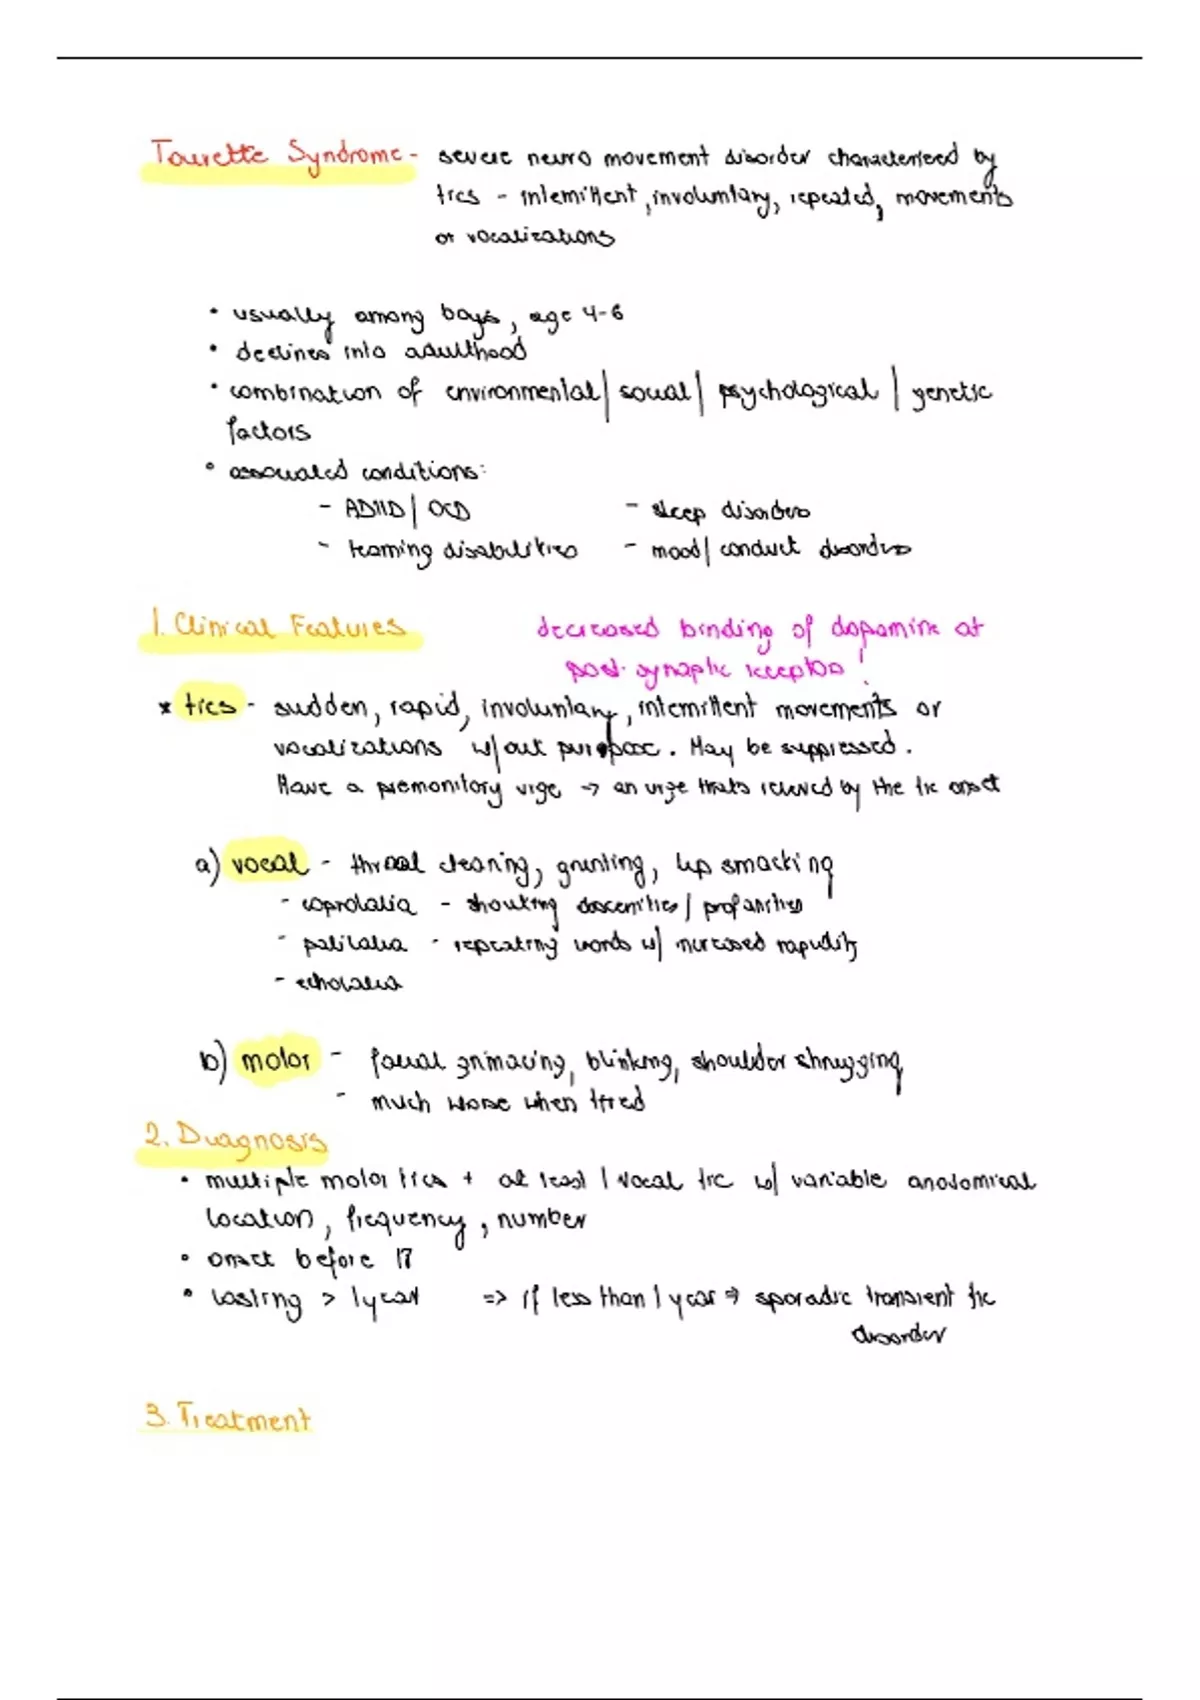 Tourette Syndrome - severe neuro movement disorder characterised by
tics - intermittent, involuntary, repeated, movements
or vocalizations
• usually among boys, age 4-6
• declines into adulthood
• combination of environmental / social / psychological / genetic
factors
• associated conditions:
- ADHD / OCD - sleep disorders
- learning disabilities - mood / conduct disorders
1. Clinical Features decreased binding of dopamine at
post-synaptic receptors!
* tics - sudden, rapid, involuntary, intermittent movements or
vocalizations w/out purpose. May be suppressed.
Have a premonitory urge → an urge thats relieved by the tic onset
a) vocal - throat clearing, grunting, lip smacking
- coprolalia - shouting obscenities / profanities
- palilalia - repeating words w/ increased rapidity
- echolalia
b) motor - facial grimacing, blinking, shoulder shrugging
- much worse when tired
2. Diagnosis
• multiple motor tics + at least 1 vocal tic w/ variable anatomical
location, frequency, number
• onset before 18
• lasting > 1 year => if less than 1 year => sporadic transient tic
disorder
3. Treatment